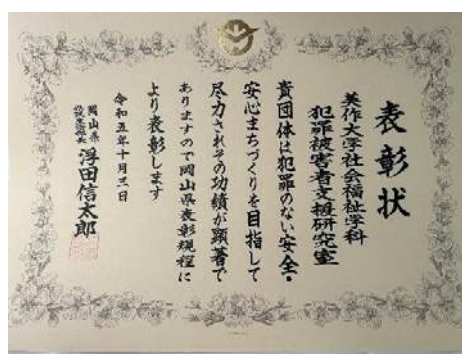 表彰状
美作大学社会福祉学科
犯罪被害者支援研究室
貴団体は犯罪のない安全・
安心まちづくりを目指して
尽力されその功績が顕著で
ありますので岡山県表彰規程に
より表彰します
令和五年十月三日
岡山県
浮田信太郎